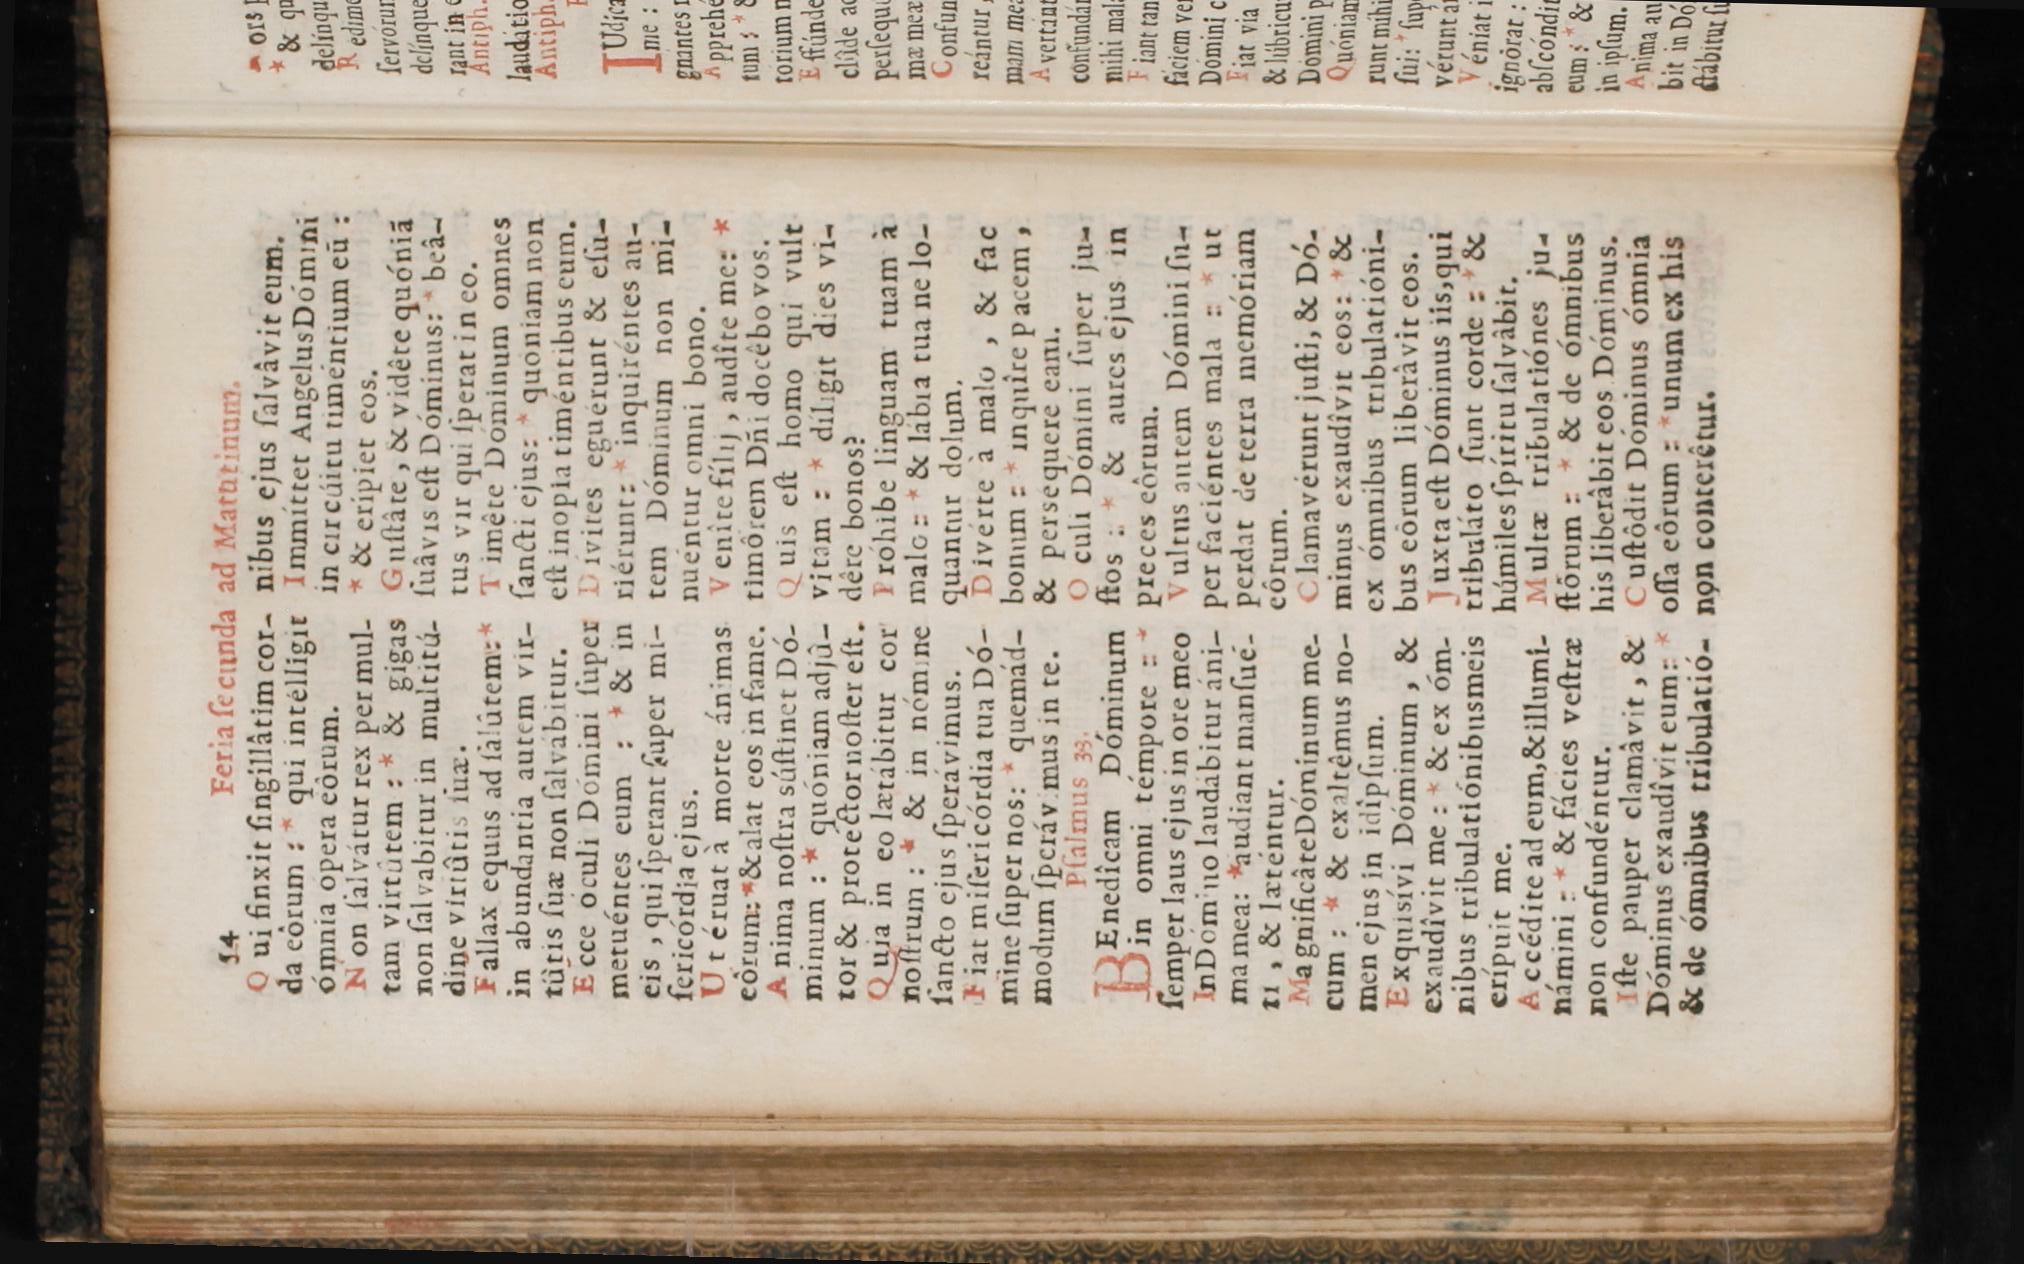 54
Feria ſecunda ad Matutinum.
Qui finxit ſingillâtim cor-
da eôrum : * qui intélligit
ómnia opera eôrum.
Non ſalvátur rex per mul-
tam virtûtem : * & gigas
non ſalvabitur in multitú-
dine virtûtis ſuæ.
Fallax equus ad ſalûtem: *
in abundantia autem vir-
tûtis ſuæ non ſalvábitur.
Ecce oculi Dómini ſuper
metuéntes eum : * & in
eis , qui ſperant ſuper mi-
ſericórdia ejus.
Ut éruat à morte ánimas
eôrum: * & alat eos in fame.
Anima noſtra súſtinet Dó-
minum : * quóniam adjû-
tor & protector noſter eſt.
Quia in eo lætábitur cor
noſtrum : * & in nómine
ſancto ejus ſperávimus.
Fiat miſericórdia tua Dó-
mine ſuper nos: * quemád-
modum ſperávimus in te.
Pſalmus 33.
BEnedîcam Dóminum
in omni témpore : *
ſemper laus ejus in ore meo
In Dómino laudabitur áni-
ma mea: * audiant manſué-
ti , & læténtur.
Magnificâte Dóminum me-
cum : * & exaltêmus no-
men ejus in idîpſum.
Exquisívi Dóminum , &
exaudîvit me : * & ex óm-
nibus tribulatiónibus meis
erípuit me.
Accédite ad eum, & illumi-
námini : * & fácies veſtræ
non confundéntur.
Iſte pauper clamâvit , &
Dóminus exaudîvit eum: *
& de ómnibus tribulatió-
nibus ejus ſalvâvit eum.
Immíttet Angelus Dómini
in circúitu timéntium eū :
* & eripiet eos.
Guſtâte , & vidête quóniā
ſuâvis eſt Dóminus: * beâ-
tus vir qui ſperat in eo.
Timête Dóminum omnes
ſancti ejus: * quóniam non
eſt inopia timéntibus eum.
Dívites eguérunt & eſu-
riérunt: * inquiréntes au-
tem Dóminum non mi-
nuéntur omni bono.
Venîte fílij , audîte me: *
timôrem Dñi docêbo vos.
Quis eſt homo qui vult
vitam : * díligit dies vi-
dére bonos?
Próhibe linguam tuam à
malo : * & lábia tua ne lo-
quantur dolum.
Divérte à malo , & fac
bonum : * inquîre pacem ,
& persequere eam.
Oculi Dómini ſuper ju-
ſtos : * & aures ejus in
preces eôrum.
Vultus autem Dómini ſu-
per faciéntes mala : * ut
perdat de terra memóriam
eôrum.
Clamavérunt juſti, & Dó-
minus exaudîvit eos: * &
ex ómnibus tribulatióni-
bus eôrum liberâvit eos.
Juxta eſt Dóminus iis, qui
tribuláto ſunt corde : * &
húmiles ſpíritu ſalvâbit.
Multæ tribulatiónes ju-
ſtôrum : * & de ómnibus
his liberâbit eos Dóminus.
Cuſtôdit Dóminus ómnia
oſſa eôrum : * unum ex his
non conterêtur.
* & qu
delínqu
Redime
ſervórum
delínque
rant in e
Antiph.
laudatio
Antiph.
IUdica
me :
gnantes
Apprehé
tum : *
torium
Effúnde
clúde
perſequ
mæ meæ
Confun
reántur ,
mam mea
Avertánt
confundán
mihi mala
Fiant tan
fáciem ve
Dómini
Fiat via
& lúbricu
Dómini p
Quóniam
runt mihi
ſui: * ſupe
vérunt a
Véniat i
ignórat :
abſcóndit
eum : * &
in ipſum.
Anima au
bit in Dó
ctábitur ſu